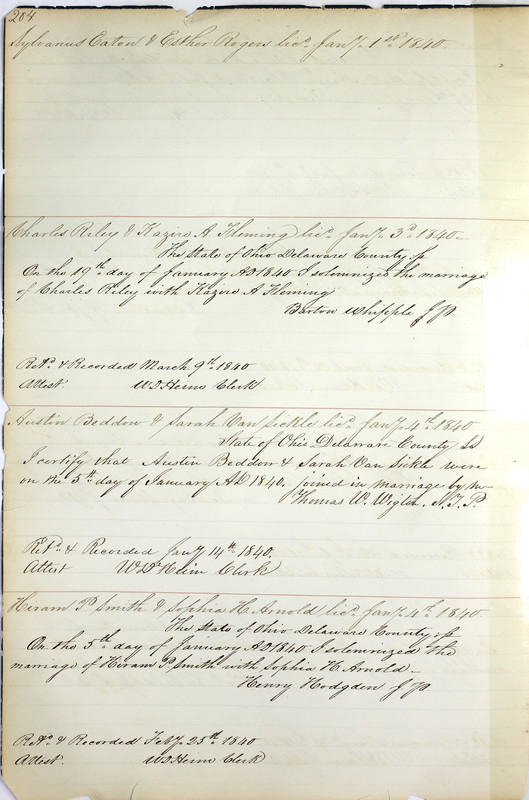 204
Sylvanus Eaton & Esther Rogers licd. Jany. 1st. 1840.
Charles Riley & Kaziro A Fleming licd. Jany. 3d. 1840.
The State of Ohio Delaware County ss
On the 19th day of January AD 1840 I solemnized the marriage
of Charles Riley with Kaziro A Fleming
Barton Whipple J P.
Retd. & Recorded March 9th. 1840
Attest. W D Heim Clerk
Austin Beddow & Sarah Van Sickle licd. Jany. 4th. 1840
State of Ohio Delaware County Ss
I certify that Austin Beddow & Sarah Van Sickle were
on the 5th day of January AD 1840. joined in marriage by me
Thomas W. Wigton. J. P.
Retd. & Recorded Jany 14th. 1840.
Attest W D Heim Clerk
Hiram P. Smith & Sophia H. Arnold licd. Jany. 4th. 1840.
The State of Ohio Delaware County, ss
On the 5th day of January AD 1840 I solemnized the
marriage of Hiram P. Smith with Sophia H Arnold
Henry Hodgden J P.
Retd. & Recorded Feby. 25th. 1840
Attest. W D Heim Clerk